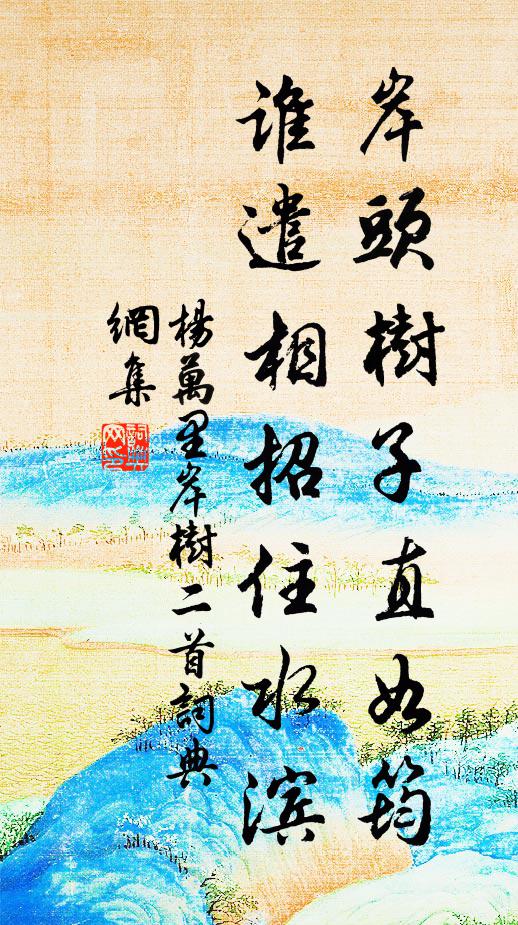 岸頭樹子直如筠
誰遣相招住水滨
楊萬里岸樹二首詞典
網集